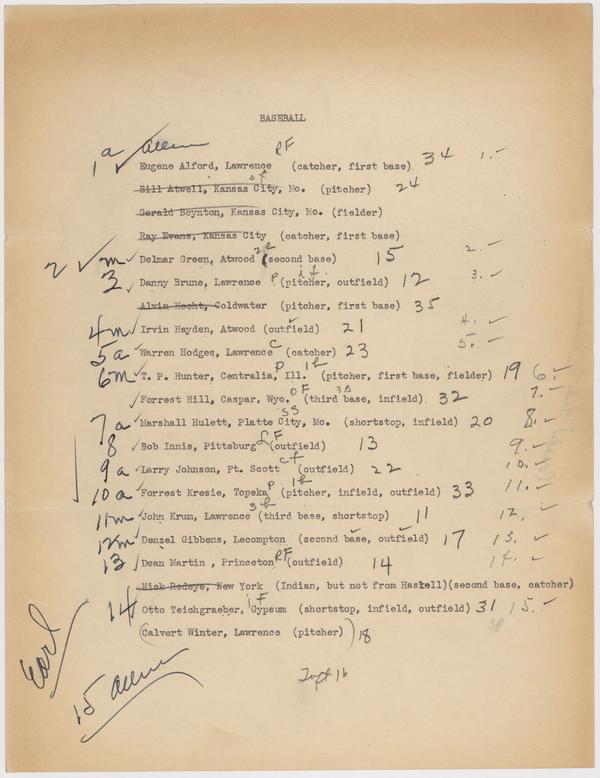 BASEBALL
1a ✓ Allen RF
Eugene Alford, Lawrence (catcher, first base) 34 1.-
Bill Atwell, Kansas City, Mo. (pitcher) 24
Gerald Boynton, Kansas City, Mo. (fielder)
Ray Evans, Kansas City (catcher, first base)
2 ✓ m ✓ Delmar Green, Atwood 2B (second base) 15 2.-
3 ✓ Danny Brune, Lawrence P if (pitcher, outfield) 12 3.-
Alvin Hecht, Coldwater (pitcher, first base) 35
4m ✓ Irvin Hayden, Atwood (outfield) 21 4. ✓
5a ✓ Warren Hodges, Lawrence C (catcher) 23 5.-
6m ✓ T. P. Hunter, Centralia, Ill. P 1b (pitcher, first base, fielder) 19 6.-
✓ Forrest Hill, Caspar, Wyo. OF 3B (third base, infield) 32 7.-
7a ✓ Marshall Hulett, Platte City, Mo. SS (shortstop, infield) 20 8.-
8 ✓ Bob Innis, Pittsburg LF (outfield) 13 9.-
9a ✓ Larry Johnson, Ft. Scott cf (outfield) 22 10.-
10a ✓ Forrest Kresie, Topeka P 1b (pitcher, infield, outfield) 33 11.-
11m ✓ John Krum, Lawrence 3b (third base, shortstop) 11 12.-
12m ✓ Denzel Gibbens, Lecompton (second base, outfield) 17 13.-
13 ✓ Dean Martin , Princeton RF (outfield) 14 14.-
Nick Redeye, New York (Indian, but not from Haskell)(second base, catcher)
14 ✓ Otto Teichgraeber, Gypsum IF (shortstop, infield, outfield) 31 15.-
(Calvert Winter, Lawrence (pitcher) ) 18
Earl
15 Allen
Taft 16